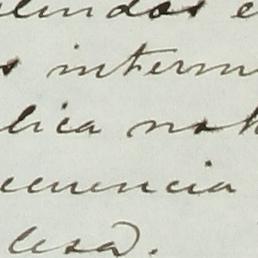 lindos e
s interm
lica not
cuencia
lesa).